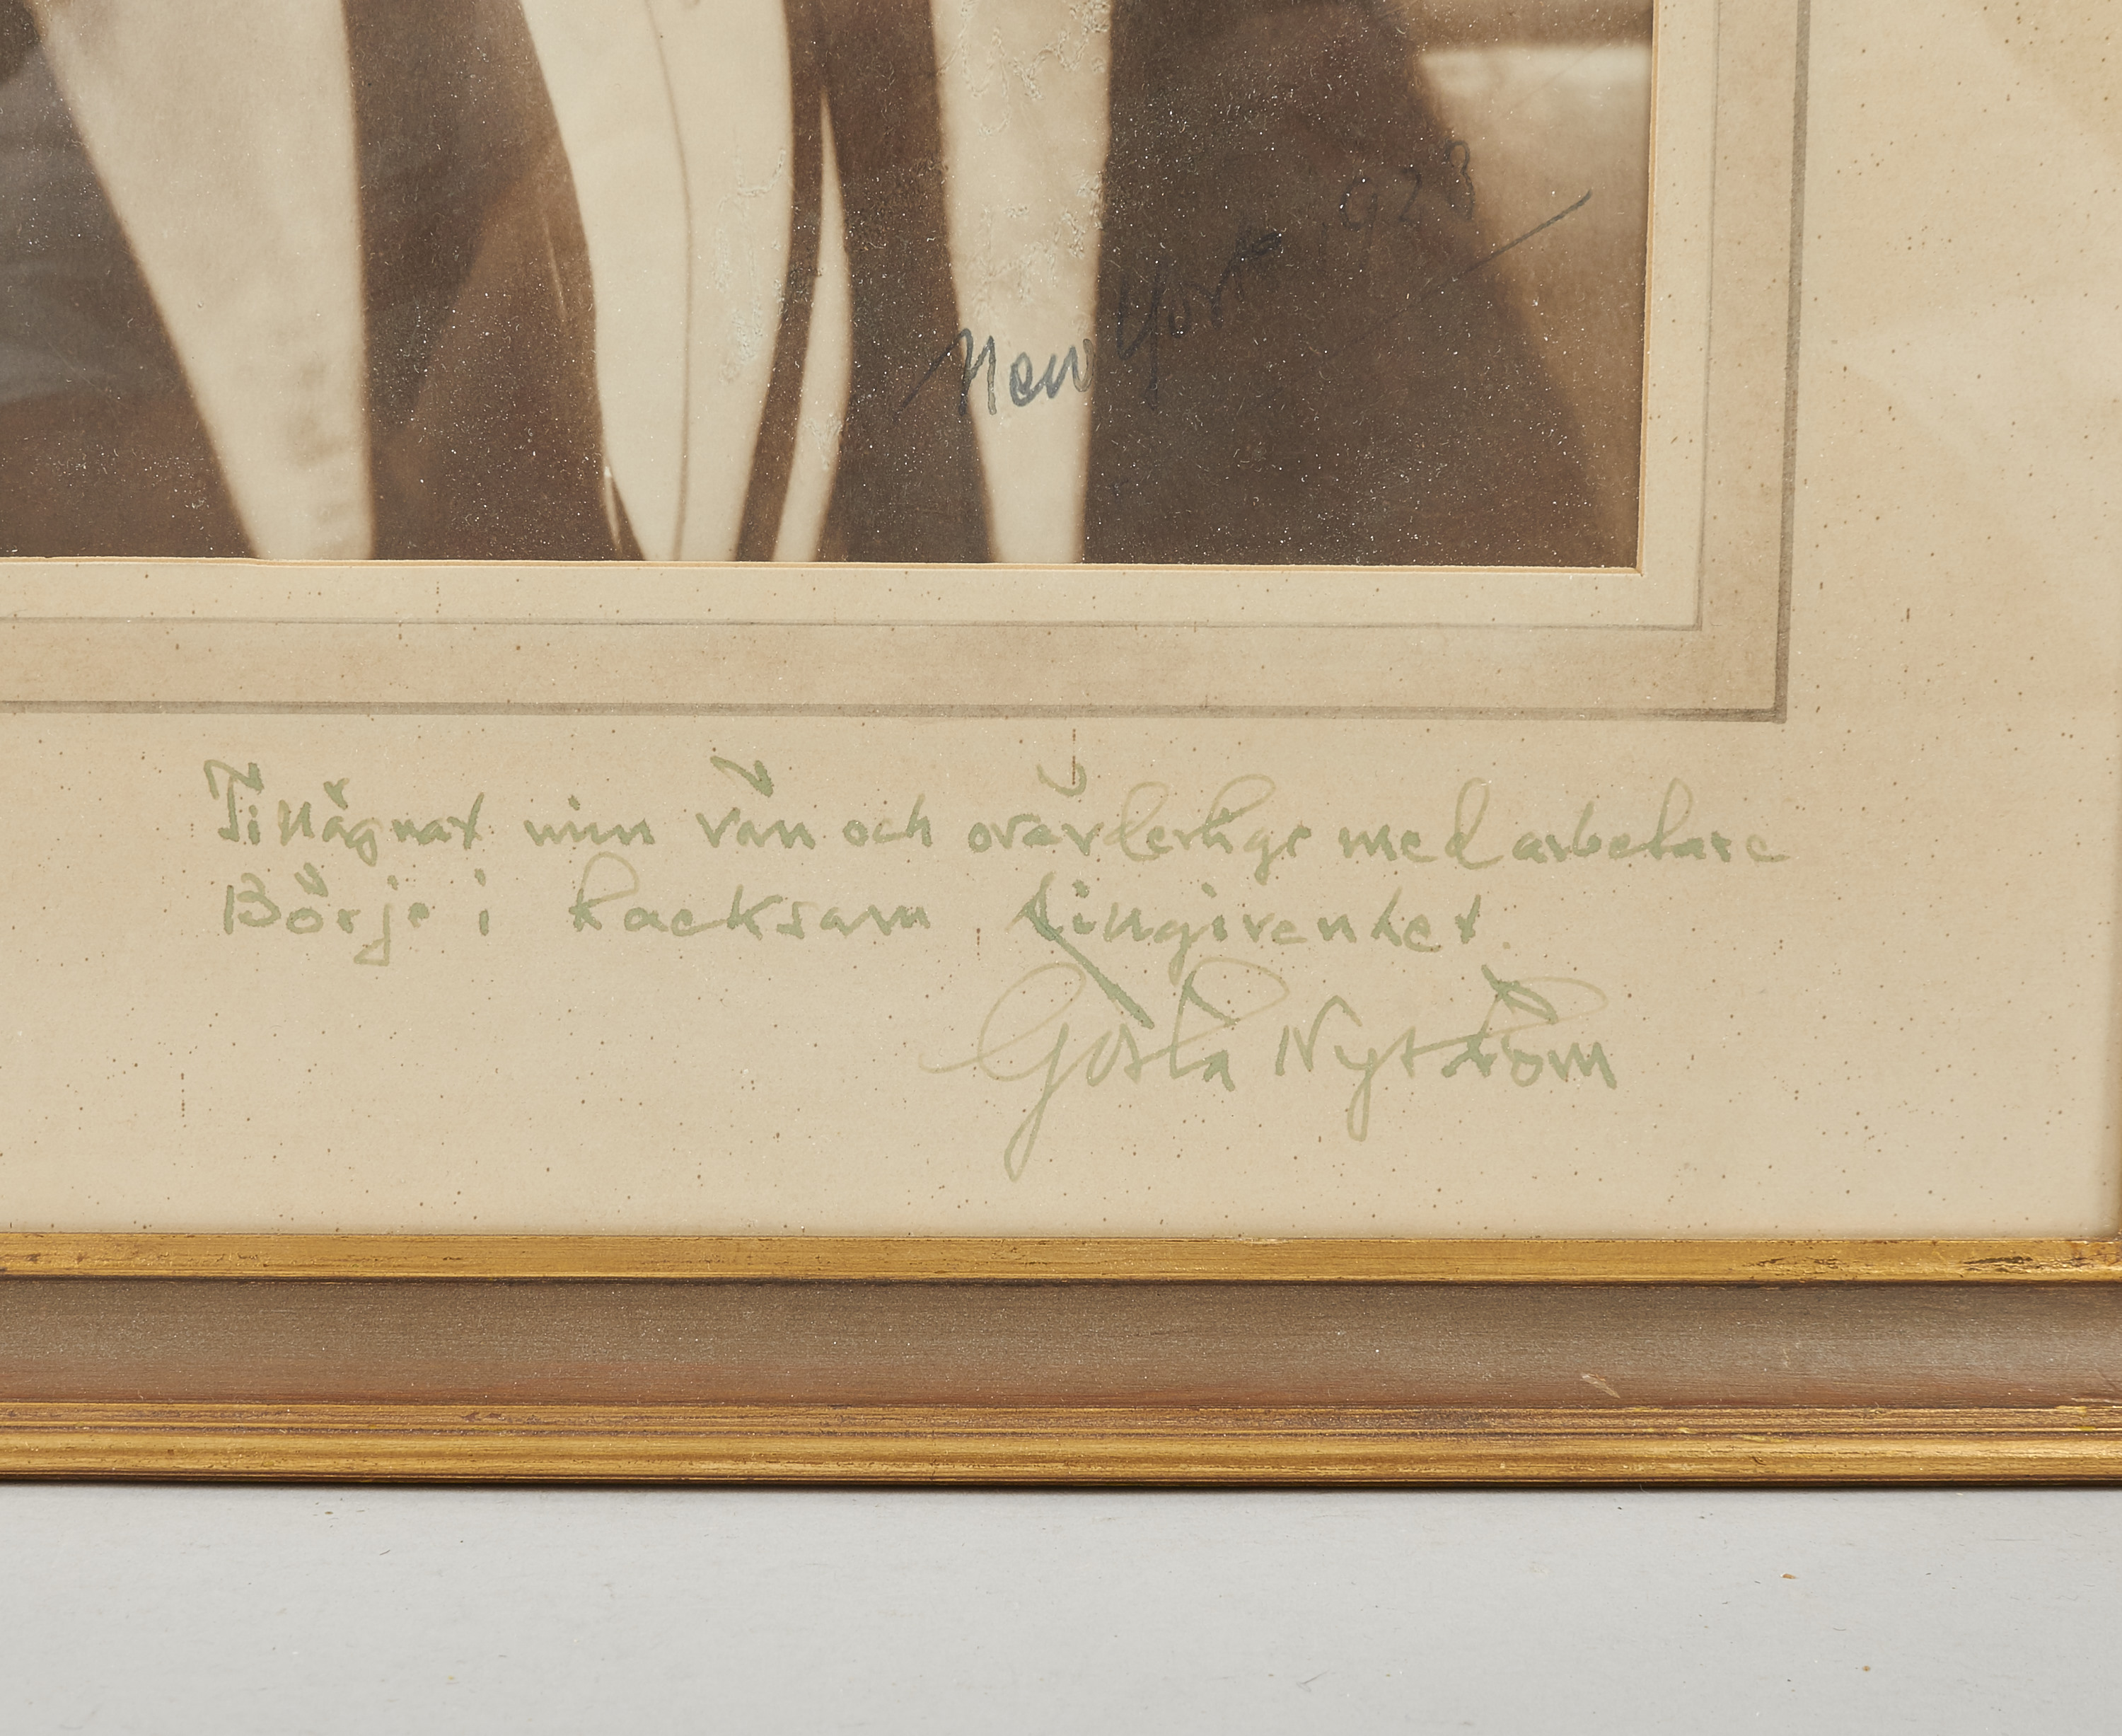 New York 1923
Tillägnat min vän och ovärderlige medarbetare
Börje i tacksam tillgivenhet.
Gösta Nyström